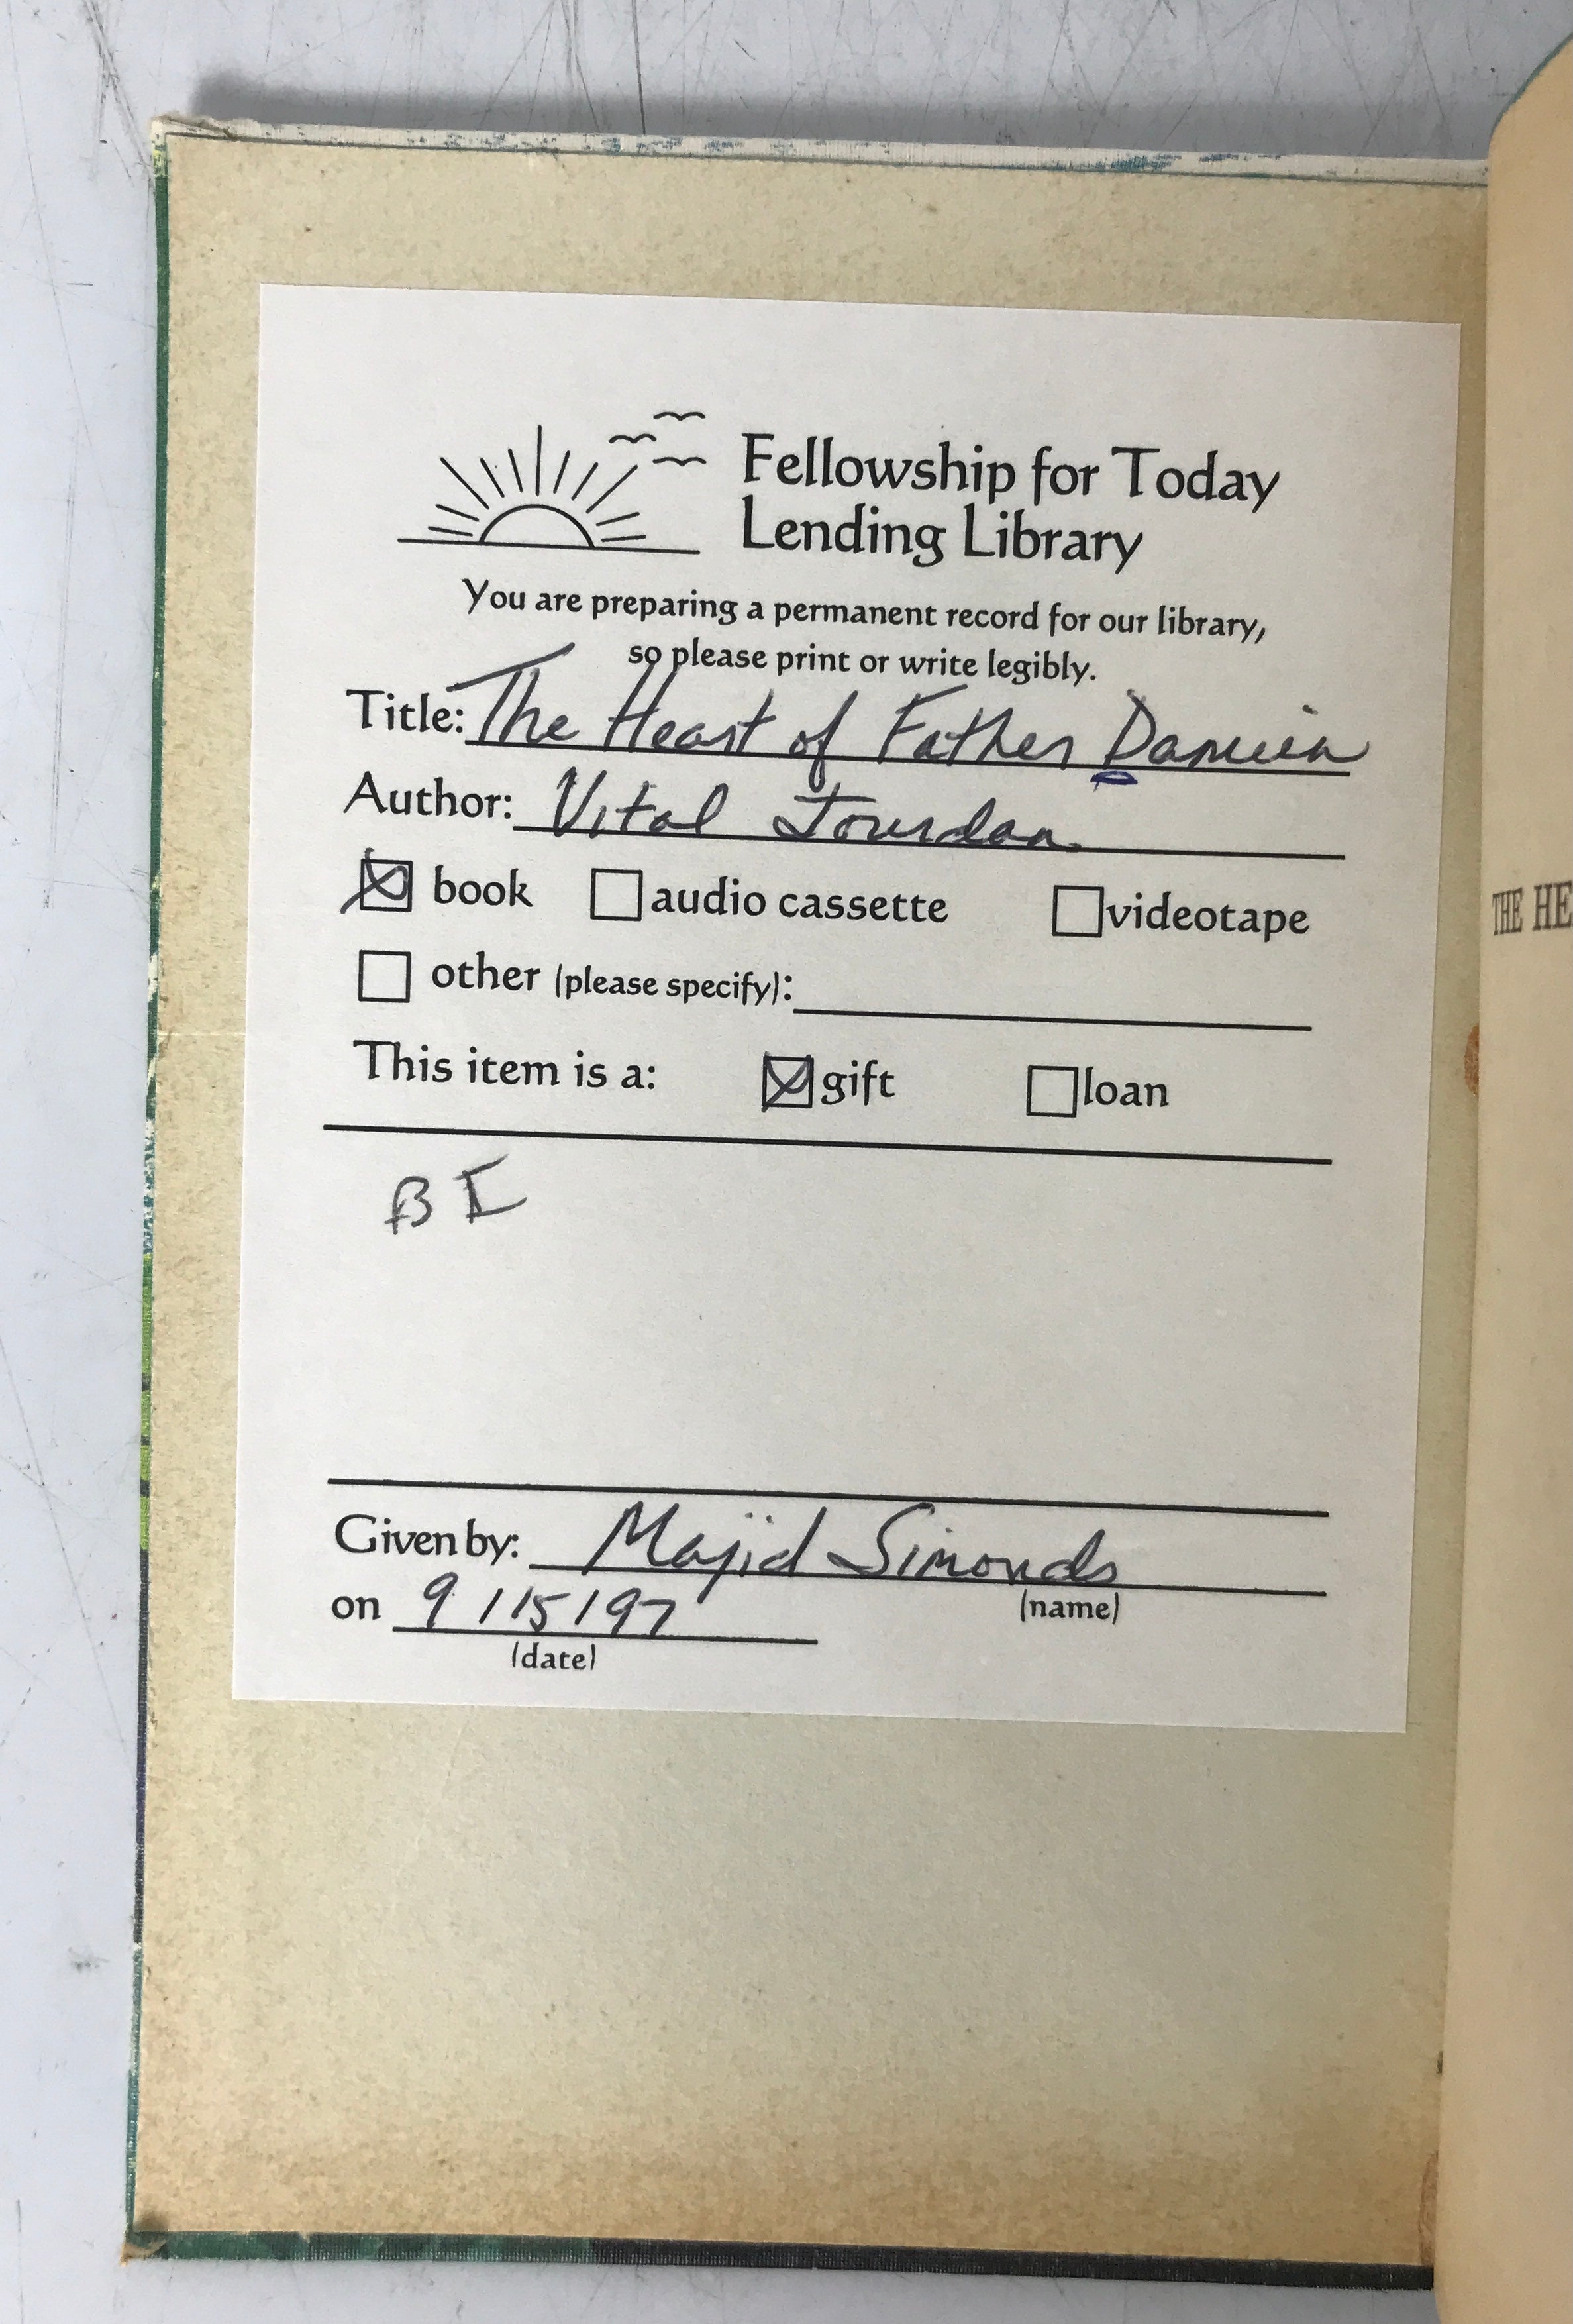 Fellowship for Today
Lending Library
You are preparing a permanent record for our library,
so please print or write legibly.
Title: The Heart of Father Damien
Author: Vital Jourdan
book audio cassette videotape
other (please specify):
This item is a: gift loan
BI
Given by: Majid Simonds
(name)
on 9/15/97
(date)
THE HE